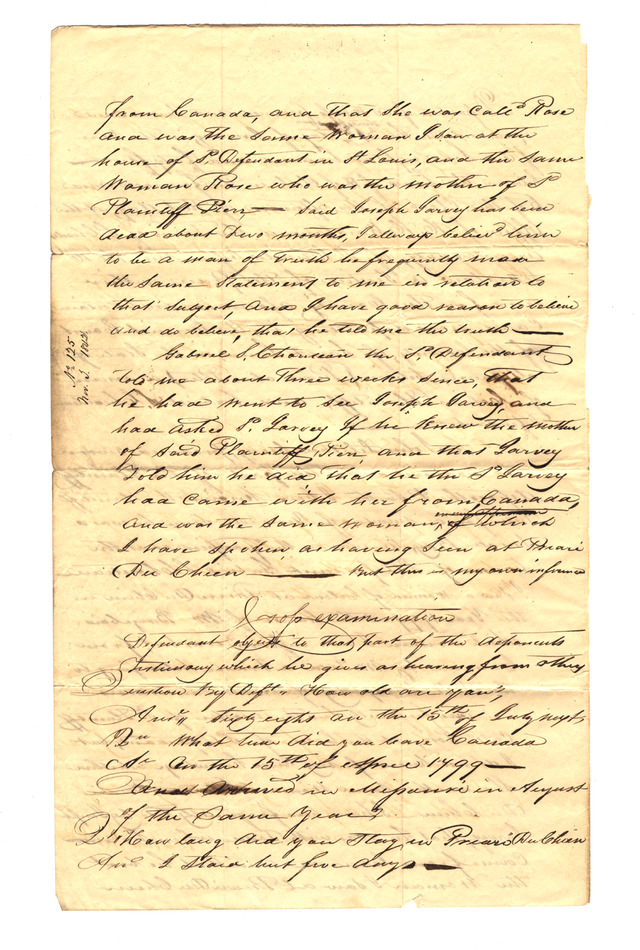 from Canada, and that She was calld Rose
and was the Same Woman I saw at the
house of Sd Defendant in St Louis, and the same
Woman Rose who was the mother of Sd
Plaintiff Pierr — Said Joseph Jarvey has been
dead about Two months, I allways believd him
to be a man of truth he frequently made
the Same Statement to me in relation to
that Subject, and I have good reason to believe
and do believe, that he told me the truth —
Gabriel S. Chouteau the Sd Defendant
told me about Three weeks since, that
he had went to see Joseph Jarvey, and
had asked Sd Jarvey If he knew the mother
of Said Plaintiff Pierr, and that Jarvey
Told him he did, that he the Sd Jarvey
had came with her from Canada,
and was the same woman, of which
I have spoken, as having Seen at Prairi
Du Chien — But this is my own inference
Cross examination
Defendant objects to that part of the deponents
Testimony which he gives as hearing from others
Question by Deft " How old are you",
Ans" Sixty eight on the 15th of July next
Qu What time did you leave Canada
An On the 15th of April 1799 —
And Arrived in Missouri in August
of the Same Year?
Q How long did you Stay in Prairi Du Chien
Ans I Staid but five days —
No 125
Nov. 3